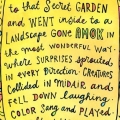 to that SECRET GARDEN
and WENT inside to a
LANDSCAPE GONE AMOK in
the most WONDERFUL WAY.
where SURPRISES sprouted
in every DIRECTION. CREATURES
Collided in MIDAIR and
FELL DOWN laughing.
COLOR SANG and PLAYED.